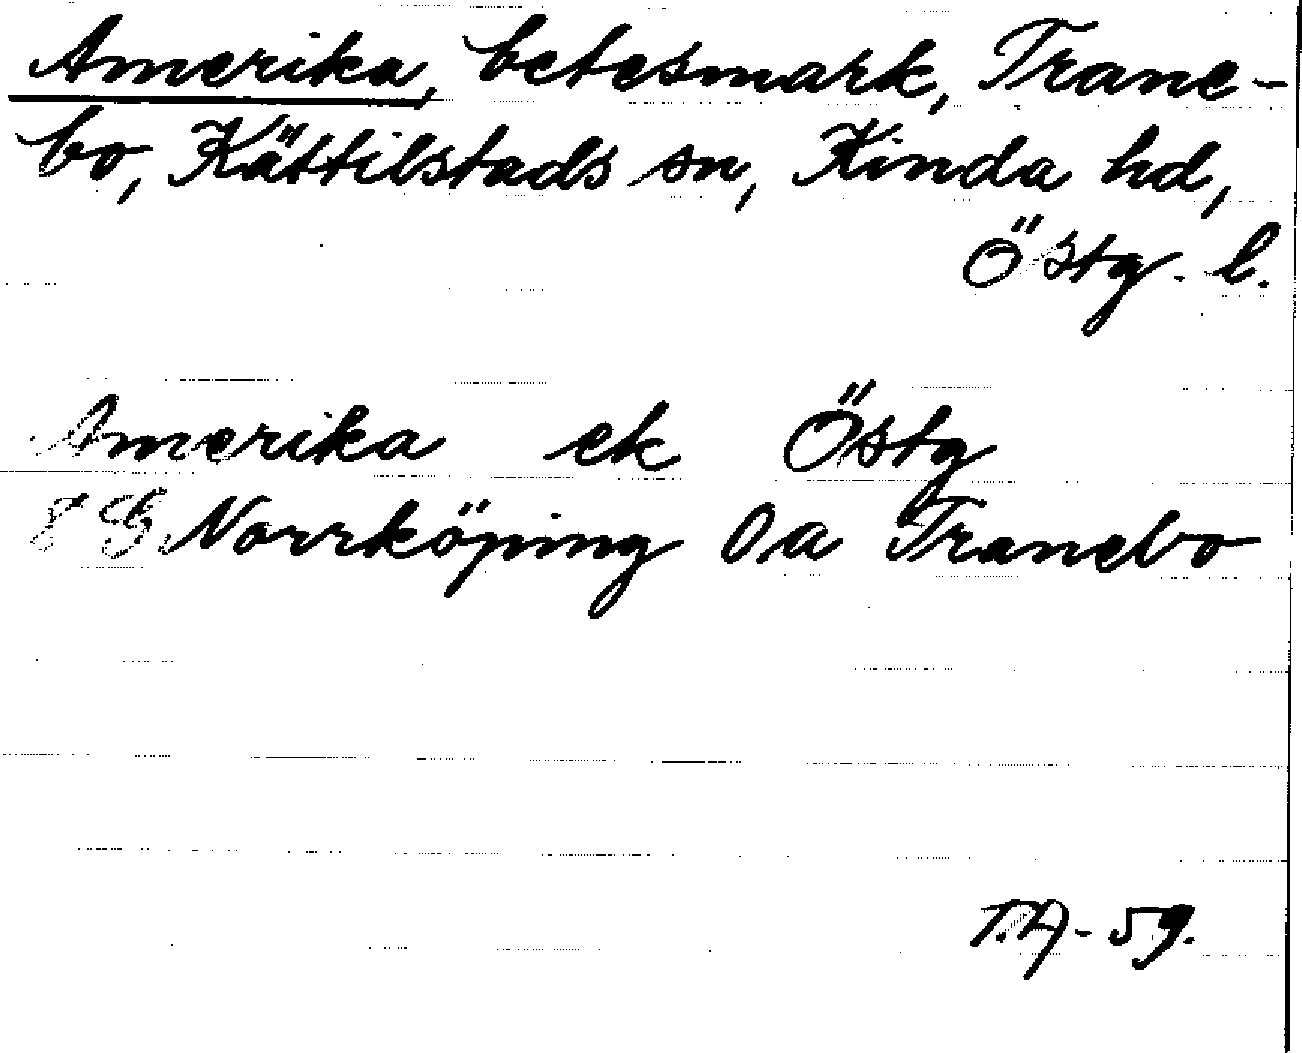 Amerika, betesmark, Trane-
bo, Kättilstads sn, Kinda hd,
Östg. l.
Amerika ek Östg
8 G Norrköping 0,a Tranebo
T.A-59.